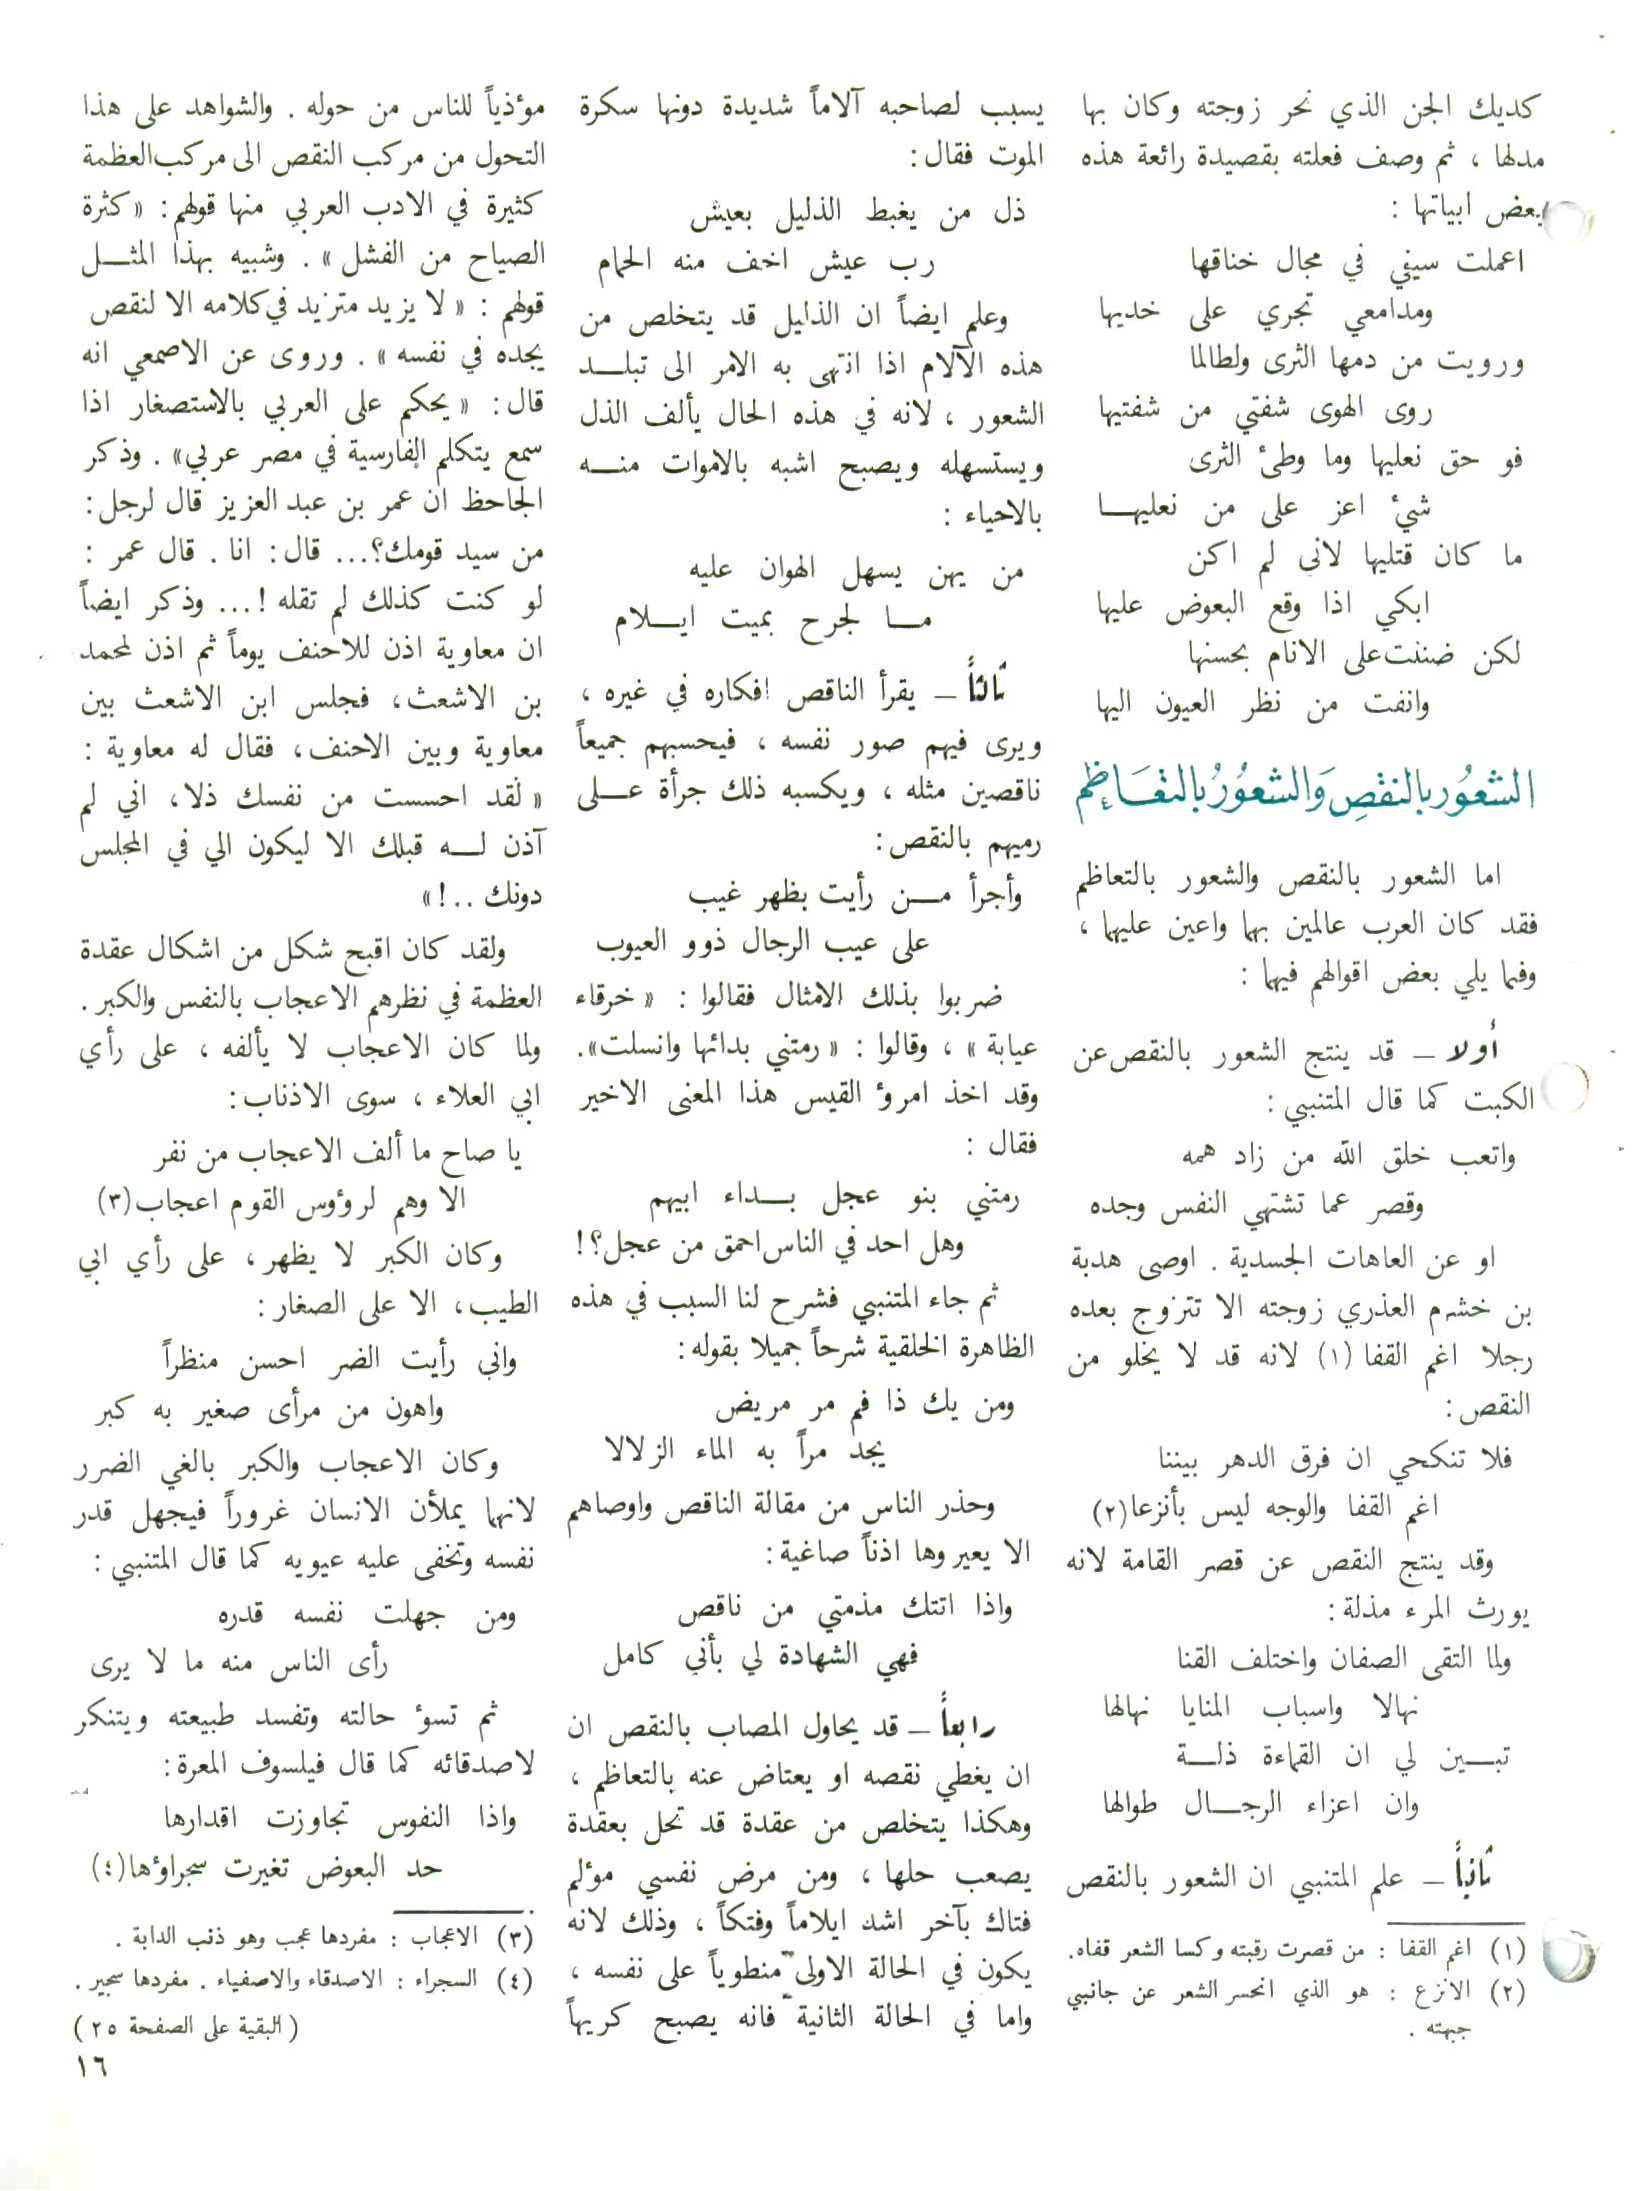 كديك الجن الذي نحر زوجته وكان بها
مدلها ، ثم وصف فعلته بقصيدة رائعة هذه
بعض ابياتها :
اعملت سيفي في مجال خناقها
ومدامعي تجري على خديها
ورويت من دمها الثرى ولطالما
روى الهوى شفتي من شفتيها
فو حق نعليها وما وطئ الثرى
شئ اعز على من نعليهـا
ما كان قتليها لاني لم اكن
ابكي اذا وقع البعوض عليها
لكن ضننت على الانام بحسنها
وانفت من نظر العيون اليها
الشعُور بالنقصِ وَالشعوُرُ بالتعَاظِم
اما الشعور بالنقص والشعور بالتعاظم
فقد كان العرب عالمين بهما واعين عليهما ،
وفيما يلي بعض اقوالهم فيهما :
أولا ـ قد ينتج الشعور بالنقص عن
الكبت كما قال المتنبي :
واتعب خلق الله من زاد همه
وقصر عما تشتهي النفس وجده
او عن العاهات الجسدية . اوصى هدبة
بن خشرم العذري زوجته الا تتزوج بعده
رجلا اغم القفا (١) لانه قد لا يخلو من
النقص :
فلا تنكحي ان فرق الدهر بيننا
اغم القفا والوجه ليس بأنزعا (٢)
وقد ينتج النقص عن قصر القامة لانه
يورث المرء مذلة :
ولما التقى الصفان واختلف القنا
نهالا واسباب المنايا نهالها
تبـين لي ان القماءة ذلـة
وان اعزاء الرجـال طوالها
ثانياً ـ علم المتنبي ان الشعور بالنقص
(١) اغم القفا : من قصرت رقبته وكسا الشعر قفاه.
(٢) الانزع : هو الذي انحسر الشعر عن جانبي
جبهته .
يسبب لصاحبه آلاماً شديدة دونها سكرة
الموت فقال :
ذل من يغبط الذليل بعيش
رب عيش اخف منه الحمام
وعلم ايضاً ان الذليل قد يتخلص من
هذه الآلام اذا انتهى به الامر الى تبلـد
الشعور ، لانه في هذه الحال يألف الذل
ويستسهله ويصبح اشبه بالاموات منـه
بالاحياء :
من يهن يسهل الهوان عليه
مـا لجرح بميت ايـلام
ثالثاً ـ يقرأ الناقص افكاره في غيره ،
ويرى فيهم صور نفسه ، فيحسبهم جميعاً
ناقصين مثله ، ويكسبه ذلك جرأة عـلى
رميهم بالنقص :
وأجرأ مـن رأيت بظهر غيب
على عيب الرجال ذوو العيوب
ضربوا بذلك الامثال فقالوا : « خرقاء
عيابة » ، وقالوا : « رمتني بدائها وانسلت».
وقد اخذ امرؤ القيس هذا المعنى الاخير
فقال :
رمتني بنو عجل بـداء ابيهم
وهل احد في الناس احمق من عجل؟!
ثم جاء المتنبي فشرح لنا السبب في هذه
الظاهرة الخلقية شرحاً جميلا بقوله :
ومن يك ذا فم مر مريض
يجد مراً به الماء الزلالا
وحذر الناس من مقالة الناقص واوصاهم
الا يعيروها اذناً صاغية :
واذا اتتك مذمتي من ناقص
فهي الشهادة لي بأني كامل
رابعاً ـ قد يحاول المصاب بالنقص ان
ان يغطي نقصه او يعتاض عنه بالتعاظم ،
وهكذا يتخلص من عقدة قد تحل بعقدة
يصعب حلها ، ومن مرض نفسي مؤلم
فتاك بآخر اشد ايلاماً وفتكاً ، وذلك لانه
يكون في الحالة الاولى منطوياً على نفسه ،
واما في الحالة الثانية فانه يصبح كريهاً
مؤذياً للناس من حوله . والشواهد على هذا
التحول من مركب النقص الى مركب العظمة
كثيرة في الادب العربي منها قولهم : « كثرة
الصياح من الفشل » . وشبيه بهذا المثـل
قولهم : « لا يزيد متزيد في كلامه الا لنقص
يجده في نفسه » . وروى عن الاصمعي انه
قال : « يحكم على العربي بالاستصغار اذا
سمع يتكلم الفارسية في مصر عربي» . وذكر
الجاحظ ان عمر بن عبد العزيز قال لرجل :
من سيد قومك؟... قال : انا . قال عمر :
لو كنت كذلك لم تقله !... وذكر ايضاً
ان معاوية اذن للاحنف يوماً ثم اذن لمحمد
بن الاشعث ، فجلس ابن الاشعث بين
معاوية وبين الاحنف ، فقال له معاوية :
« لقد احسست من نفسك ذلا ، اني لم
آذن لـه قبلك الا ليكون الي في المجلس
دونك ..!»
ولقد كان اقبح شكل من اشكال عقدة
العظمة في نظرهم الاعجاب بالنفس والكبر .
ولما كان الاعجاب لا يألفه ، على رأي
ابي العلاء ، سوى الاذناب :
يا صاح ما ألف الاعجاب من نفر
الا وهم لرؤوس القوم اعجاب (٣)
وكان الكبر لا يظهر ، على رأي ابي
الطيب ، الا على الصغار :
واني رأيت الضر احسن منظراً
واهون من مرأى صغير به كبر
وكان الاعجاب والكبر بالغي الضرر
لانهما يملأن الانسان غروراً فيجهل قدر
نفسه وتخفى عليه عيوبه كما قال المتنبي :
ومن جهلت نفسه قدره
رأى الناس منه ما لا يرى
ثم تسؤ حالته وتفسد طبيعته ويتنكر
لاصدقائه كما قال فيلسوف المعرة :
واذا النفوس تجاوزت اقدارها
حد البعوض تغيرت سجراؤها (٤)
(٣) الاعجاب : مفردها عجب وهو ذنب الدابة .
(٤) السجراء : الاصدقاء والاصفياء . مفردها سجير .
( البقية على الصفحة ٢٥ )
١٦